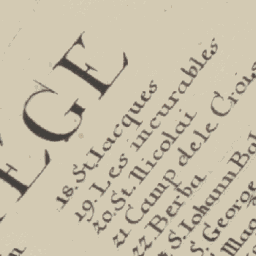 EGE
18. St. Jacques
19. Les incurables
20. St. Nicolai
21 Camp de le Crois
22. Berba
S. Iohann Bal
S. George
Mag